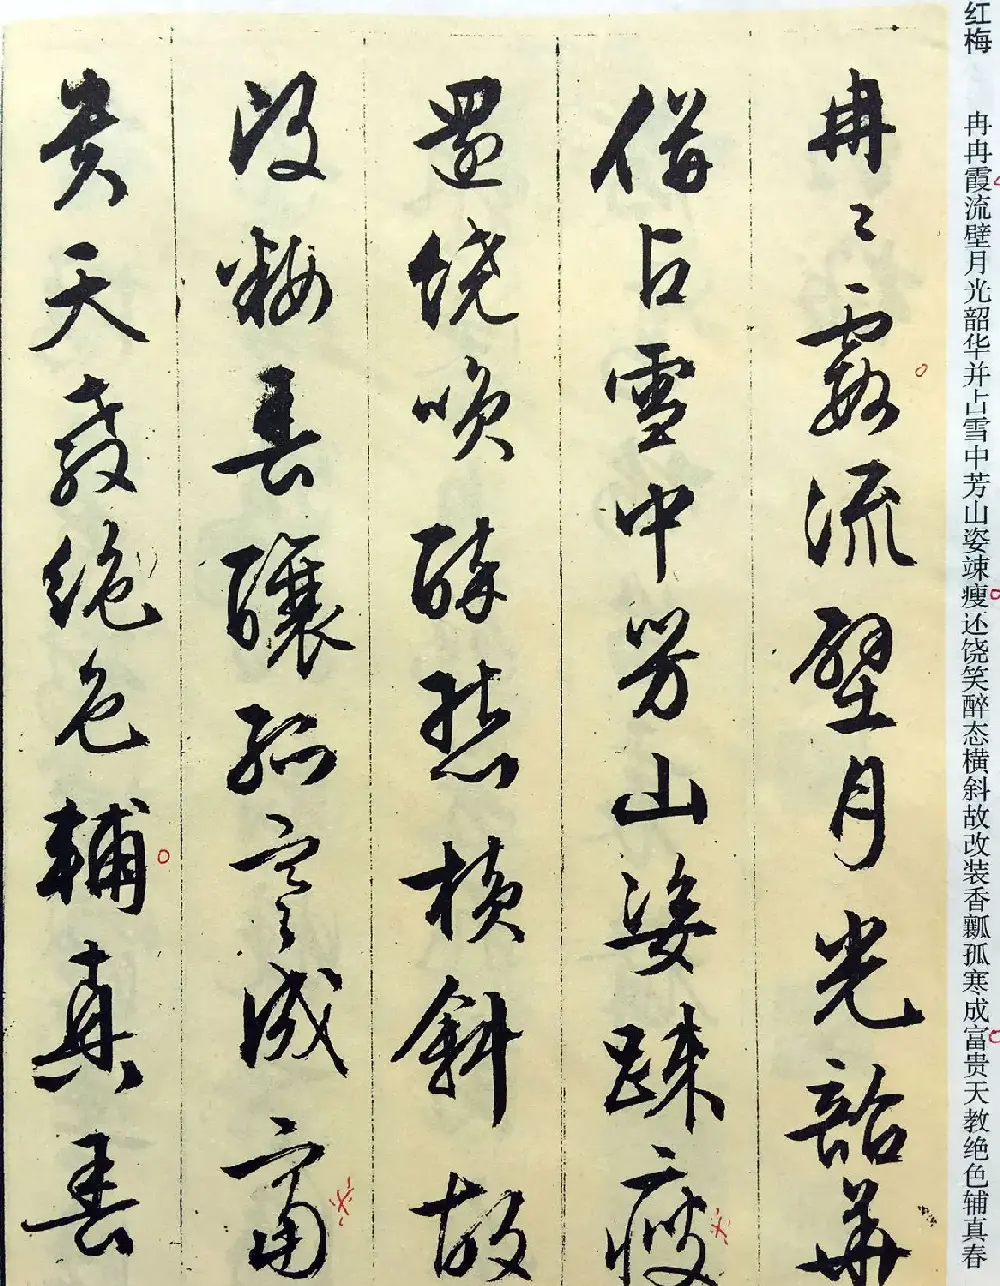 红梅
冉冉霞流壁月光韶华并占雪中芳山姿竦瘦还饶笑醉态横斜故改装香瓤孤寒成富贵天教绝色辅真春
冉〻霞流壁月光韶華
併占雪中芳山姿踈瘦
還饒咲醉態横斜故
改粧春釀孤寒成富
貴天教絶色輔真春